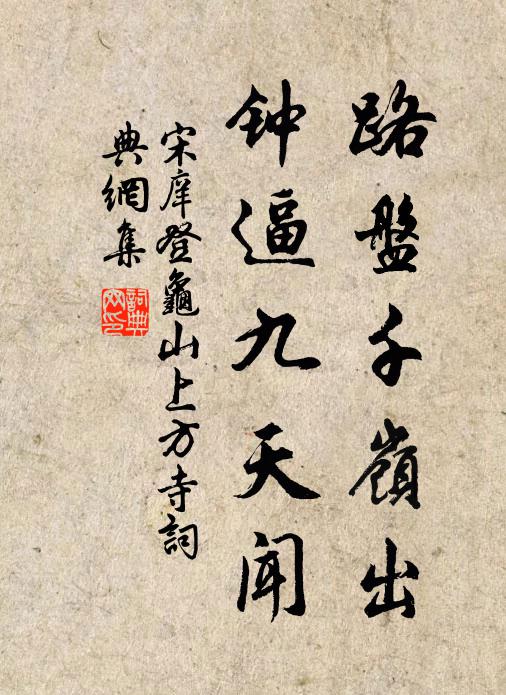 路盤千嶺出
钟逼九天聞
宋庠登龜山上方寺詞
典網集
詞典網印